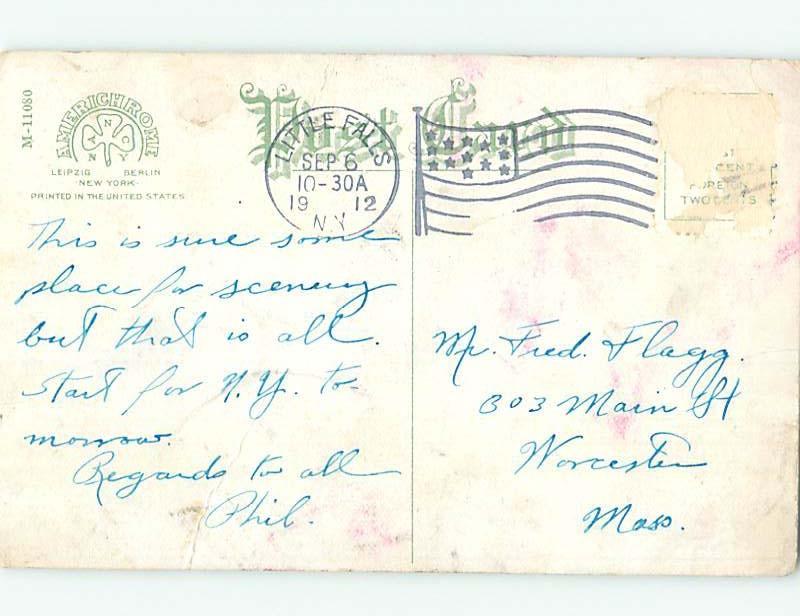 M-11080
AMERICHROME
A N C Y
N N
LEIPZIG BERLIN
NEW YORK
PRINTED IN THE UNITED STATES
Post Card
LITTLE FALLS
SEP 6
10-30A
19 12
N.Y.
CENT
FOREIGN
TWO CENTS
This is sure some
place for scenery
but that is all.
Start for N.Y. to-
morrow.
Regards to all
Phil.
Mr. Fred. Flagg.
303 Main St
Worcester
Mass.